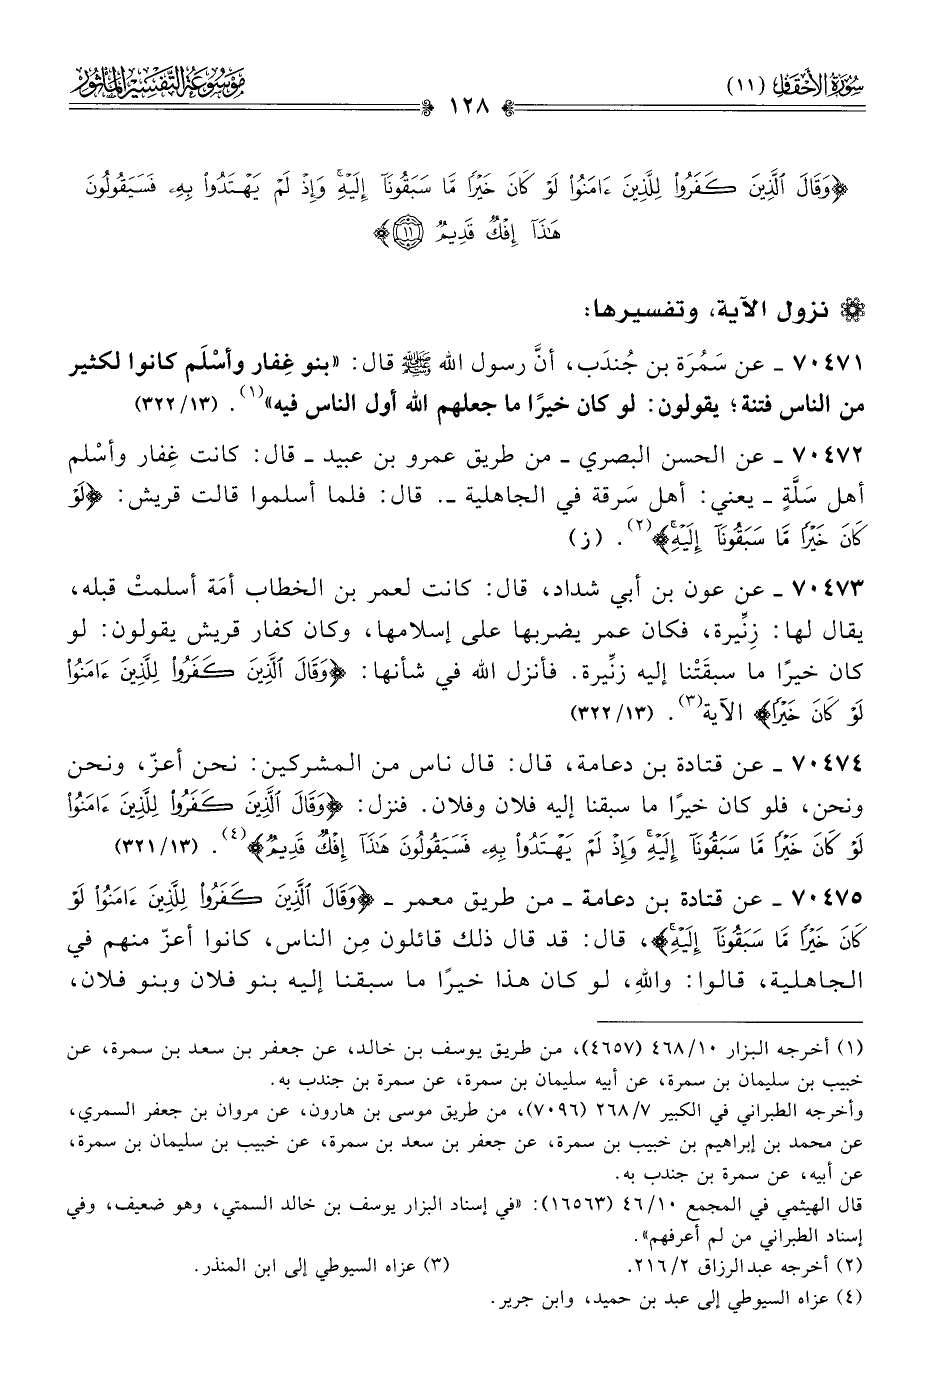 سورة الأحقاف (١١)
١٢٨
موسوعة التفسير المأثور
﴿وَقَالَ ٱلَّذِينَ كَفَرُوا۟ لِلَّذِينَ ءَامَنُوا۟ لَوْ كَانَ خَيْرًا مَّا سَبَقُونَآ إِلَيْهِ ۚ وَإِذْ لَمْ يَهْتَدُوا۟ بِهِۦ فَسَيَقُولُونَ
هَٰذَآ إِفْكٌ قَدِيمٌ ١١﴾
نزول الآية، وتفسيرها:
٧٠٤٧١ ـ عن سَمُرَة بن جُندَب، أنَّ رسول الله ﷺ قال: «بنو غِفار وأسْلَم كانوا لكثير
من الناس فتنة؛ يقولون: لو كان خيرًا ما جعلهم الله أول الناس فيه»(١). (١٣/٣٢٢)
٧٠٤٧٢ ـ عن الحسن البصري ـ من طريق عمرو بن عبيد ـ قال: كانت غِفار وأسْلم
أهل سَلَّةٍ ـ يعني: أهل سَرقة في الجاهلية ـ. قال: فلما أسلموا قالت قريش: ﴿لَوْ
كَانَ خَيْرًا مَّا سَبَقُونَآ إِلَيْهِ ۚ﴾(٢). (ز)
٧٠٤٧٣ ـ عن عون بن أبي شداد، قال: كانت لعمر بن الخطاب أمَة أسلمتْ قبله،
يقال لها: زِنِّيرة، فكان عمر يضربها على إسلامها، وكان كفار قريش يقولون: لو
كان خيرًا ما سبقَتْنا إليه زنِّيرة. فأنزل الله في شأنها: ﴿وَقَالَ ٱلَّذِينَ كَفَرُوا۟ لِلَّذِينَ ءَامَنُوا۟
لَوْ كَانَ خَيْرًا﴾ الآية(٣). (١٣/٣٢٢)
٧٠٤٧٤ ـ عن قتادة بن دعامة، قال: قال ناس من المشركين: نحن أعزّ، ونحن
ونحن، فلو كان خيرًا ما سبقنا إليه فلان وفلان. فنزل: ﴿وَقَالَ ٱلَّذِينَ كَفَرُوا۟ لِلَّذِينَ ءَامَنُوا۟
لَوْ كَانَ خَيْرًا مَّا سَبَقُونَآ إِلَيْهِ ۚ وَإِذْ لَمْ يَهْتَدُوا۟ بِهِۦ فَسَيَقُولُونَ هَٰذَآ إِفْكٌ قَدِيمٌ﴾(٤). (١٣/٣٢١)
٧٠٤٧٥ ـ عن قتادة بن دعامة ـ من طريق معمر ـ ﴿وَقَالَ ٱلَّذِينَ كَفَرُوا۟ لِلَّذِينَ ءَامَنُوا۟ لَوْ
كَانَ خَيْرًا مَّا سَبَقُونَآ إِلَيْهِ ۚ﴾، قال: قد قال ذلك قائلون مِن الناس، كانوا أعزّ منهم في
الجاهلية، قالوا: واللهِ، لو كان هذا خيرًا ما سبقنا إليه بنو فلان وبنو فلان،
(١) أخرجه البزار ١٠/٤٦٨ (٤٦٥٧)، من طريق يوسف بن خالد، عن جعفر بن سعد بن سمرة، عن
خبيب بن سليمان بن سمرة، عن أبيه سليمان بن سمرة، عن سمرة بن جندب به.
وأخرجه الطبراني في الكبير ٧/٢٦٨ (٧٠٩٦)، من طريق موسى بن هارون، عن مروان بن جعفر السمري،
عن محمد بن إبراهيم بن خبيب بن سمرة، عن جعفر بن سعد بن سمرة، عن خبيب بن سليمان بن سمرة،
عن أبيه، عن سمرة بن جندب به.
قال الهيثمي في المجمع ١٠/٤٦ (١٦٥٦٣): «في إسناد البزار يوسف بن خالد السمتي، وهو ضعيف، وفي
إسناد الطبراني من لم أعرفهم».
(٢) أخرجه عبدالرزاق ٢/٢١٦. (٣) عزاه السيوطي إلى ابن المنذر.
(٤) عزاه السيوطي إلى عبد بن حميد، وابن جرير.